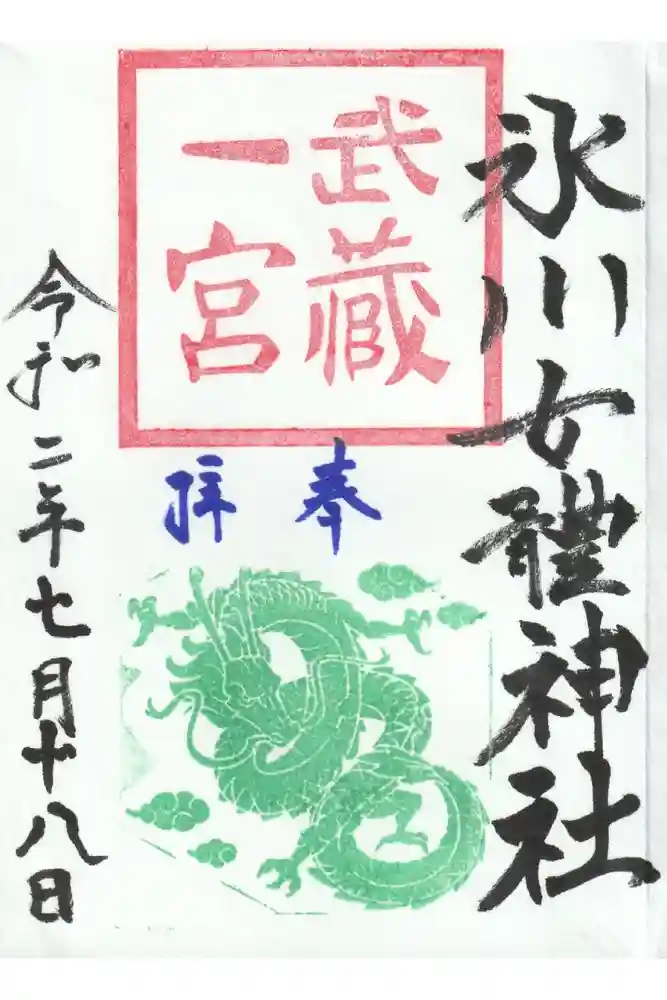 氷川女體神社
武蔵
一宮
奉拝
令和二年七月十八日